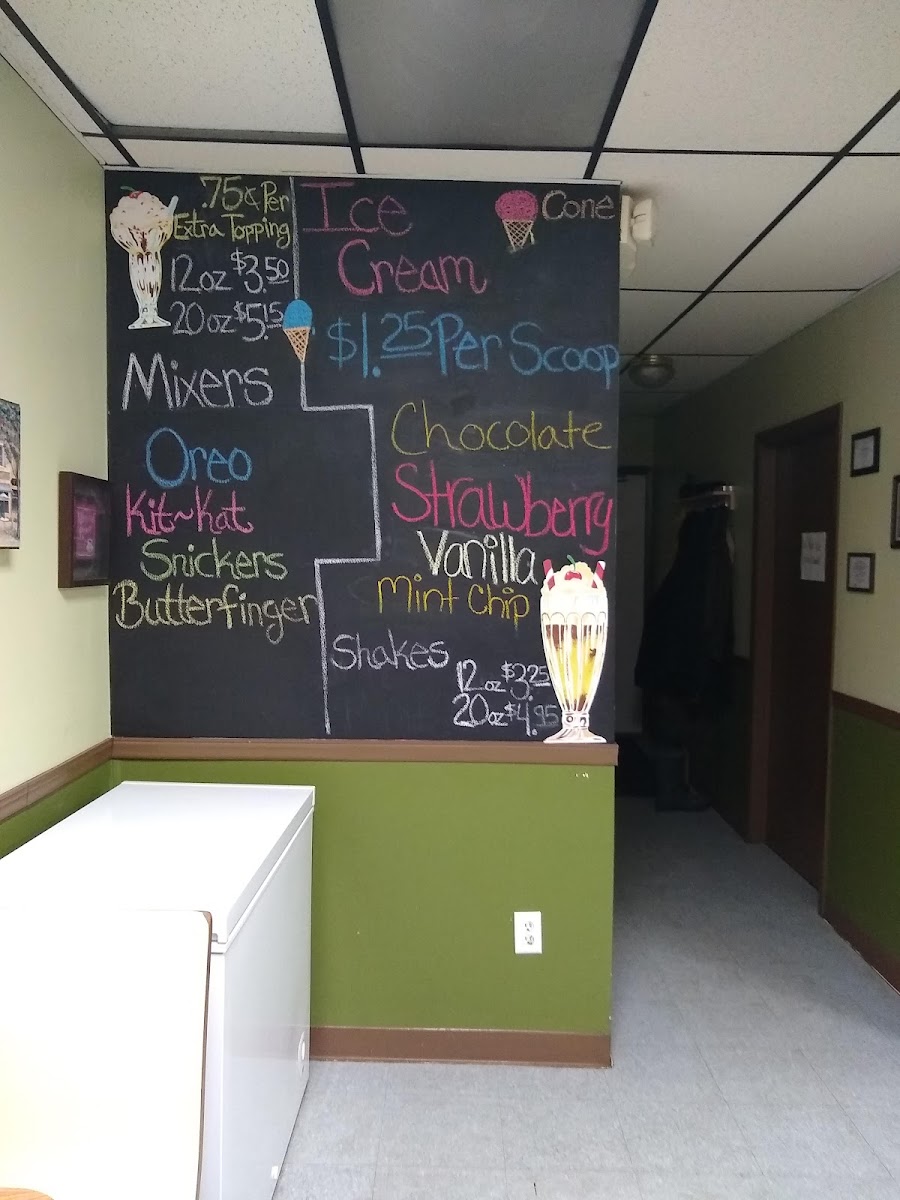 .75¢ Per
Extra Topping
12oz $3.50
20oz $5.15
Mixers
Oreo
Kit~Kat
Snickers
Butterfinger
Ice
Cream
Cone
$1.25 Per Scoop
Chocolate
Strawberry
Vanilla
Mint Chip
Shakes
12oz $3.25
20oz $4.95